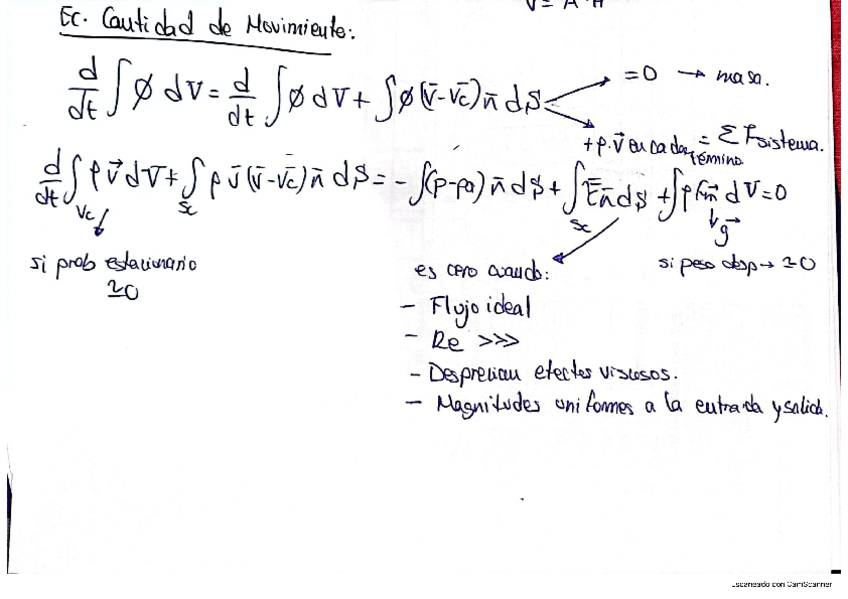 V = A · H
Ec. Cantidad de Movimiento:
d/dt ∫ ϕ dV = d/dt ∫ ϕ dV + ∫ ϕ (v̄ - v̄c) n̄ dS
= 0 → masa.
+ ρ · v̄ en cada término = Σ F sistema.
d/dt ∫Vc ρ v⃗ dV + ∫Sc ρ v̄ (v̄ - v̄c) n̄ dS = - ∫ (p - pa) n̄ dS + ∫Sc n̄ dS + ∫ ρ dV = 0
g⃗
si prob estacionario
= 0
es cero cuando:
si peso desp → = 0
- Flujo ideal
- Re >>>
- Desprecian efectos viscosos.
- Magnitudes uniformes a la entrada y salida.
Escaneado con CamScanner